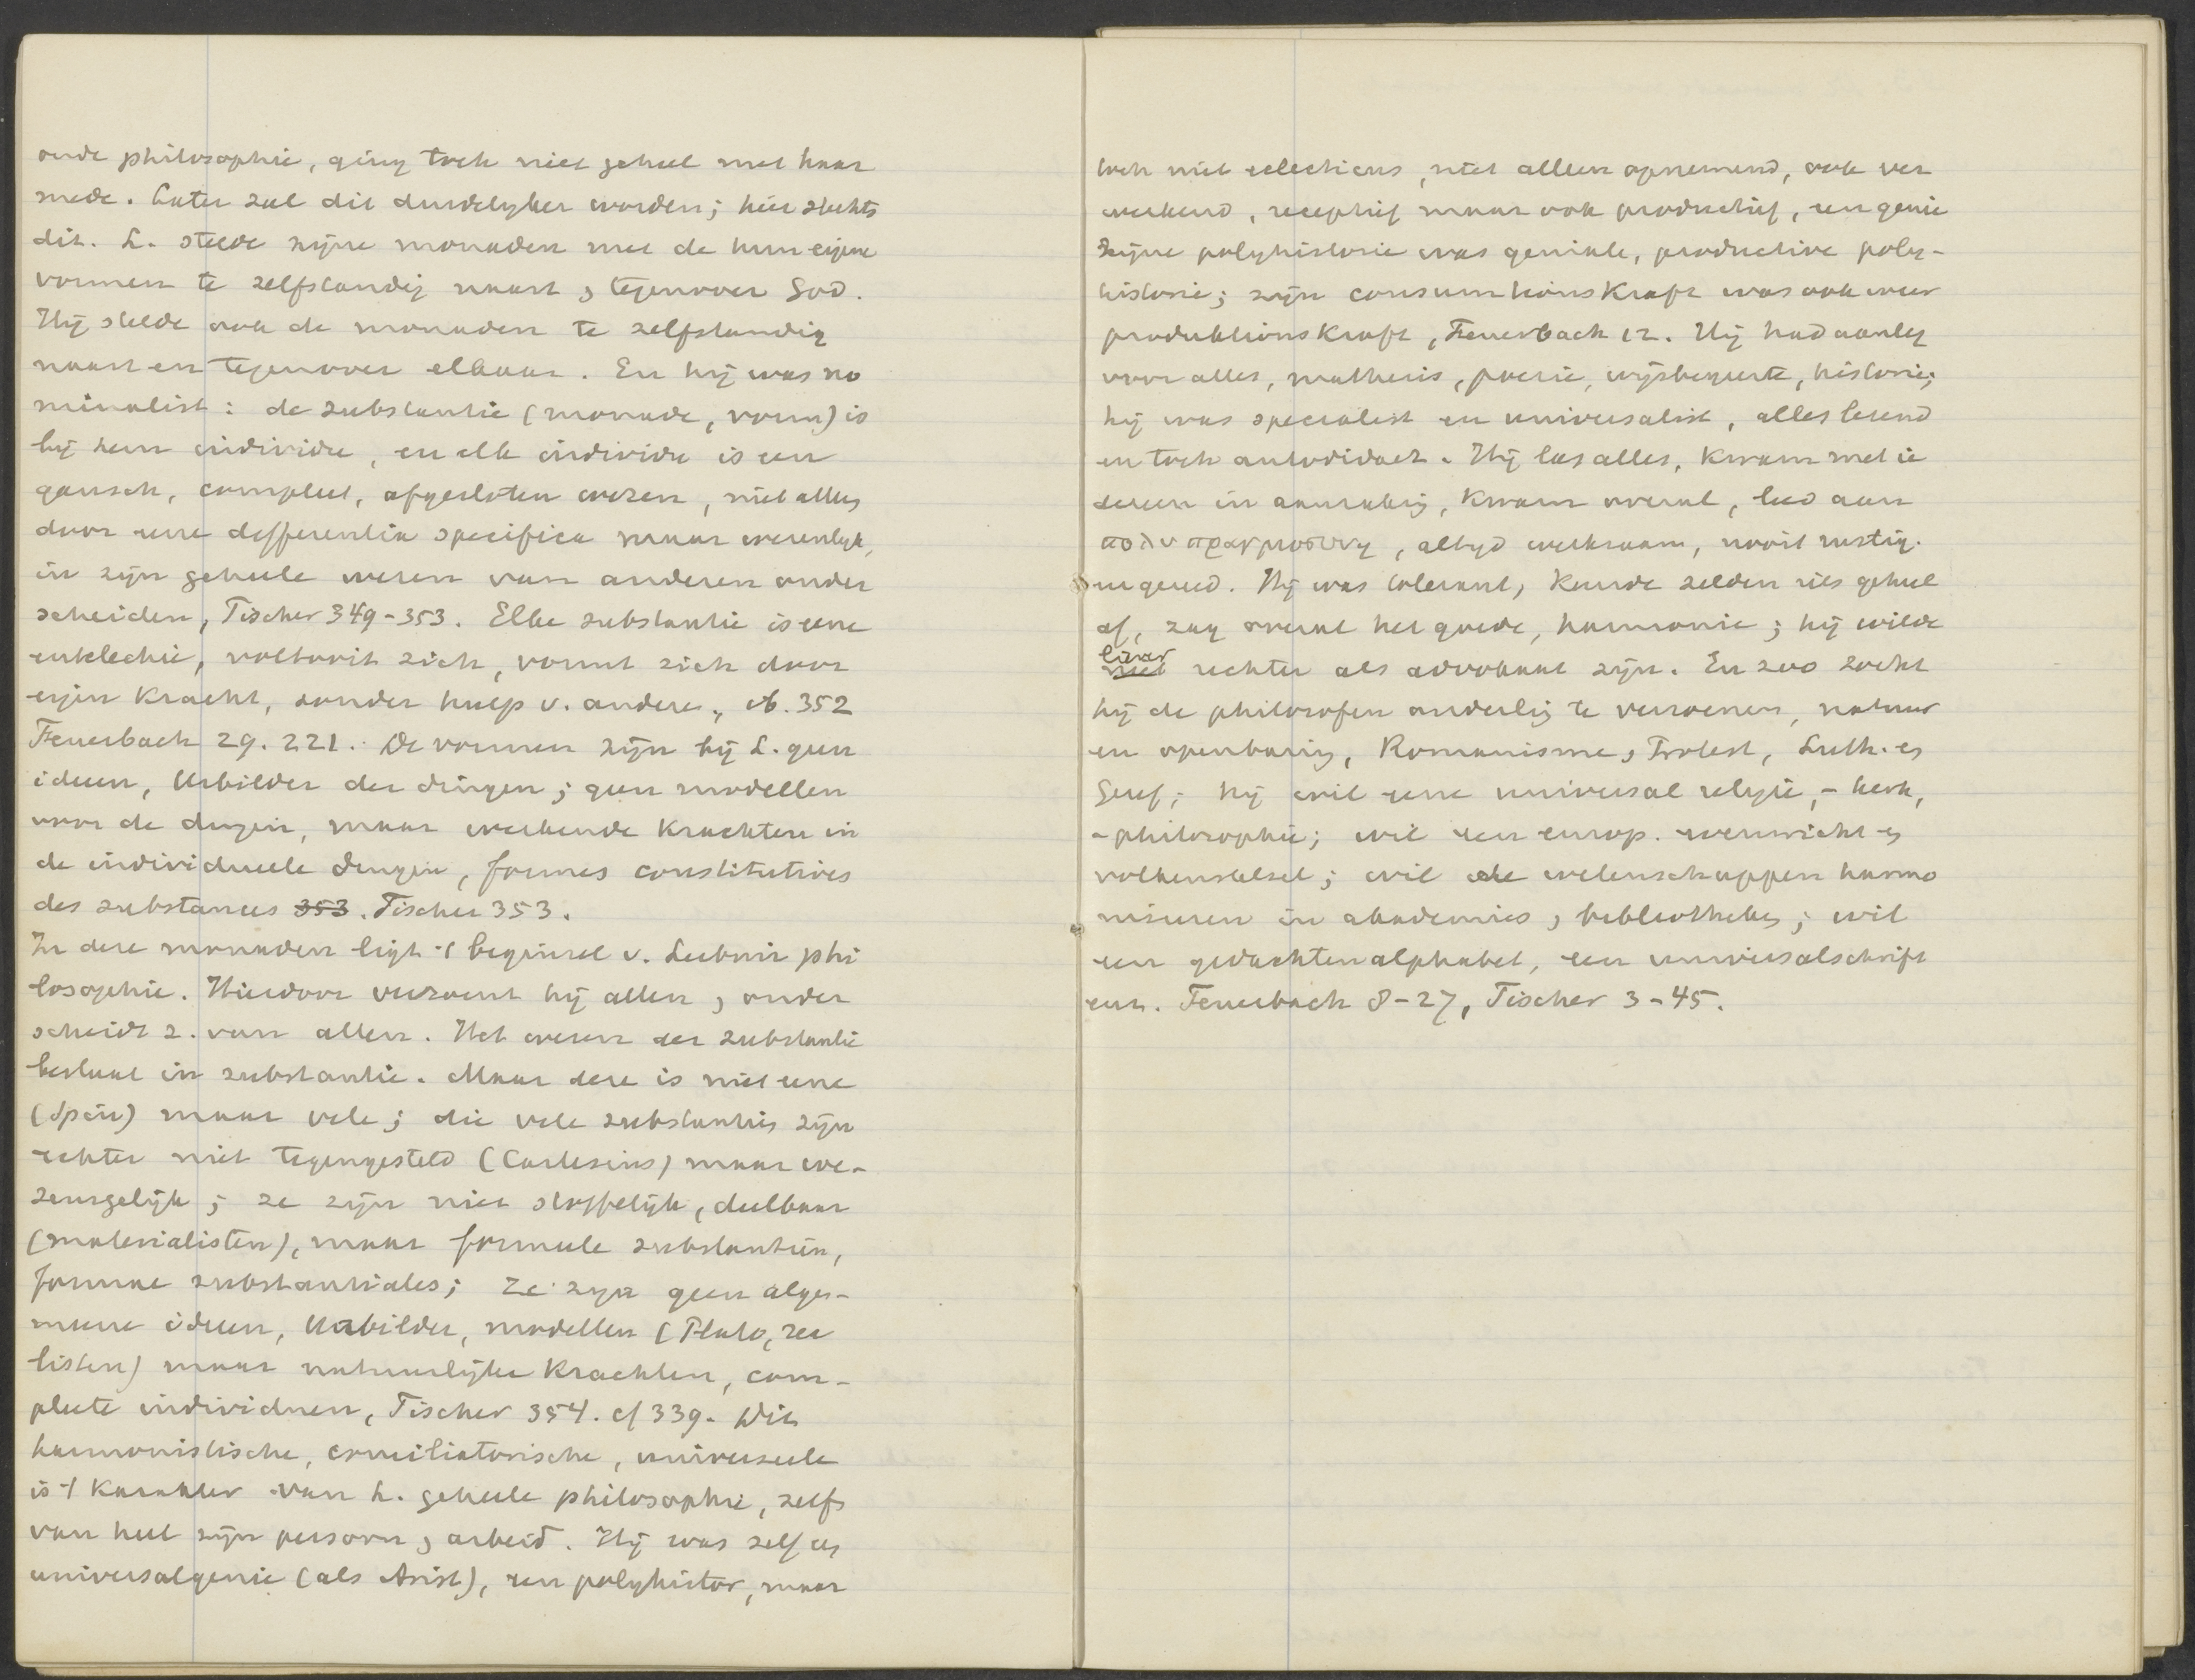 oude philosophie, ging toch niet geheel met haar
mede. Later zal dit duidelyker worden; hier slechts
dit. L. stelde zijne monaden met de hun eigene
vormen te zelfstandig naast , tegenover God.
Hij stelde ook de monaden te zelfstandig
naast en tegenover elkaar. En hij was no
minalist: de substantie (monade, vorm) is
bij hem individu, en elk individu is een
gansch, compleet, afgesloten wezen, niet alleen
door eene differentia specifica maar wezenlyk,
in zijn geheele wezen van anderen onder
scheiden, Fischer 349-353. Elke substantie is eene
entelechie, voltooit zich, vormt zich door
eigen Kracht, zonder hulp v. andere, ib. 352
Feuerbach 29. 221. De vormen zijn bij L. geen
ideeen, Urbilder der dingen; geen modellen
voor de dingen, maar werkende Krachten in
de individueele dingen, formes constitutives
des substances 353. Fischer 353.
In deze monaden ligt 't beginsel v. Leibniz phi
losophie. Hierdoor verzoent hij allen , onder
scheidt z. van allen. Het wezen der substantie
bestaat in substantie. Maar deze is niet eene
(Spin) maar vele; die vele substanties zijn
echter niet tegengesteld (Cartesius) maar we-
zensgelijk; ze zijn niet stoffelijk, deelbaar
(materialisten), maar formeele substantiën,
formae substantiales; Ze zijn geen alge-
meene ideeen, Urbilder, modellen (Plato, rea
listen) maar natuurlijke Krachten, com-
pleete individuen, Fischer 354. cf 339. Dit
harmonistische, conciliatorische, universeele
is 't Karakter van L. geheele philosophie, zelfs
van heel zijn persoon , arbeid. Hij was zelf een
universalgenie (als Arist), een polyhistor, maar
toch niet eclecticus, niet alleen opnemend, ook ver
werkend, receptief maar ook productief, een genie
Zijne polyhistorie was geniale, productive poly-
historie; zijn consumtionsKraft was ook weer
produktionsKraft, Feuerbach 12. Hij had aanleg
voor alles, mathesis, poezie, wijsbegeerte, historie;
hij was specialist en universalist, alles lezend
en toch autodidact. Hij las alles, Kwam met ie
dereen in aanraking, Kwam overal, leed aan
πολυπραγμοσυνη, altyd werkzaam, nooit rustig.
ingereed. Hij was tolerant, Keurde zelden iets geheel
af, zag overal het goede, harmonie; hij wilde
liever
niet rechter als advokaat zijn. En zoo zocht
hij de philosofen onderling te verzoenen, natuur
en openbaring, Romanisme , Protest, Luth. en
Geref; hij wil eene universal religie, - kerk,
- philosophie; wil een europ. evenwicht en
volkenstelsel; wil alle wetenschappen harmo
nieeren in akademies , bibliotheken; wil
een gedachtenalphabet, een universalschrift
enz. Feuerbach 8-27, Fischer 3-45.